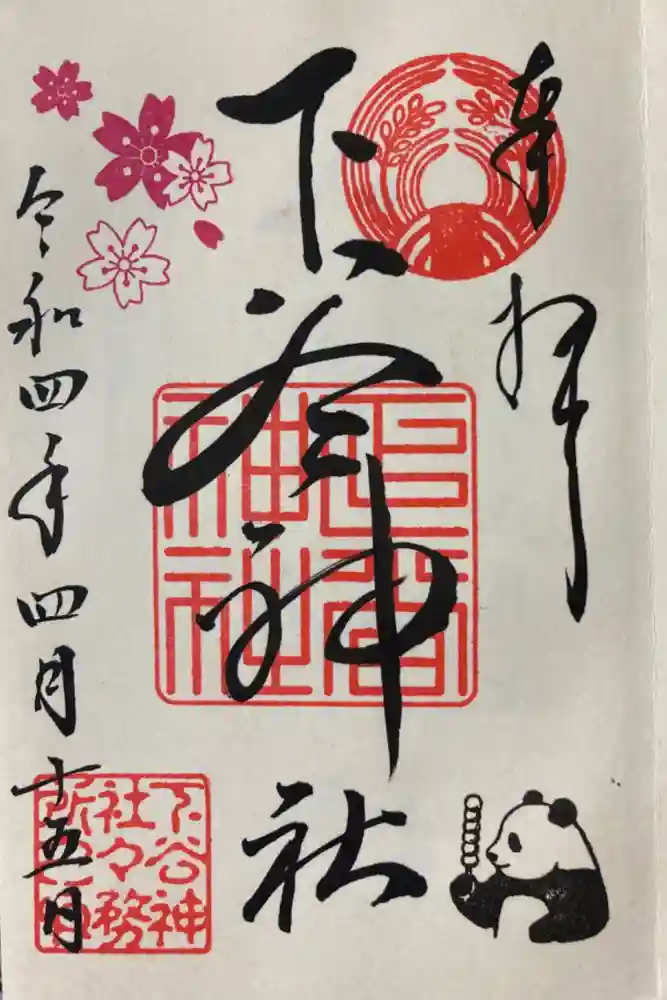 奉拝
下谷神社
下谷神社
令和四年四月十五日
下谷神
社々務